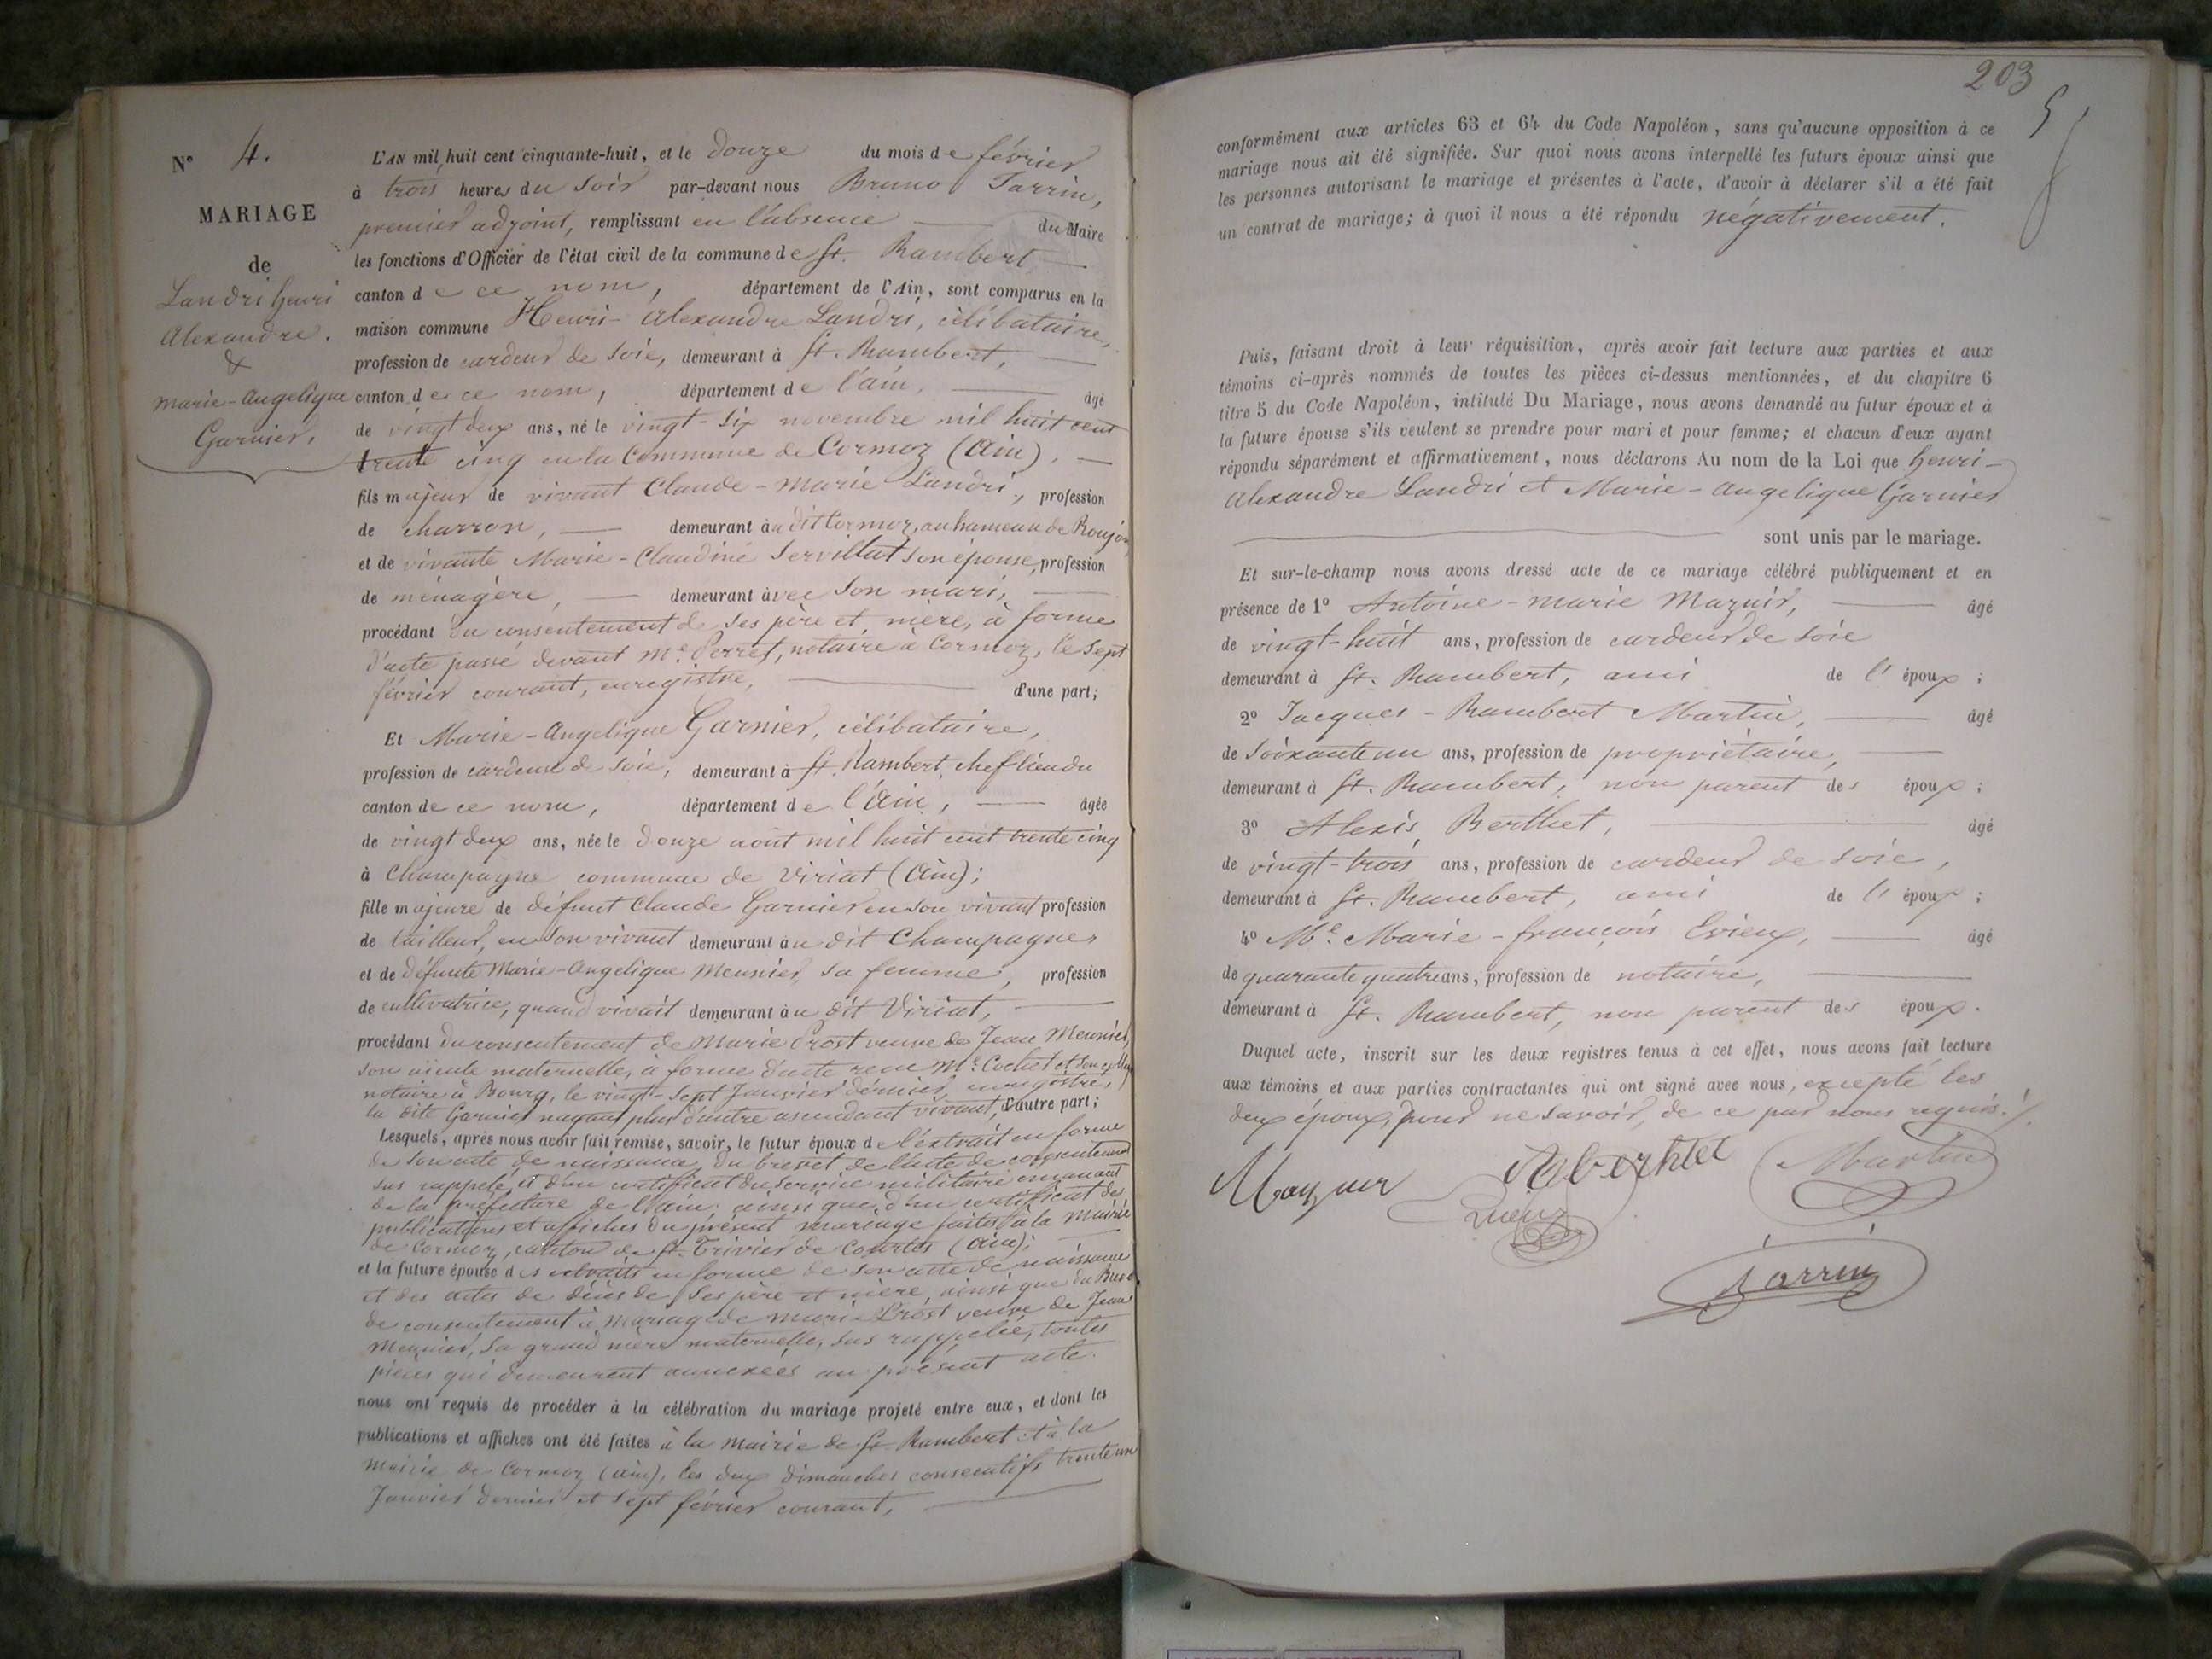 N° 4.
MARIAGE
de
Landri henri
Alexandre.
&
marie-Angelique
Garnier,
L'AN mil huit cent cinquante-huit, et le douze du mois de février
à trois heures du soir par-devant nous Bruno Jarrin,
premier adjoint, remplissant en l'absence du Maire
les fonctions d'Officier de l'état civil de la commune de St. Rambert
canton de ce nom, département de l'Ain, sont comparus en la
maison commune Henri-Alexandre Landri, célibataire,
profession de cardeur de soie, demeurant à St. Rambert,
canton de ce nom, département de l'ain, âgé
de vingt deux ans, né le vingt-six novembre mil huit cent
trente cinq en la Commune de Cormoz (Ain),
fils majeur de vivant Claude-Marie Landri, profession
de charron, demeurant au dit Cormoz, au hameau de
et de vivante Marie-Claudine Servillat son épouse, profession
de ménagère, demeurant avec son mari,
procédant du consentement de ses père et mère, à forme
d'acte passé devant Me. Perret, notaire à Cormoz, le sept
février courant, enregistré, d'une part;
Et Marie-Angelique Garnier, célibataire,
profession de cardeuse de soie, demeurant à St. Rambert, chef lieu du
canton de ce nom, département de l'Ain, âgée
de vingt deux ans, née le douze août mil huit cent trente cinq
à Champagne commune de Viriat (Ain);
fille majeure de défunt Claude Garnier en son vivant profession
de tailleur, en son vivant demeurant au dit Champagne
et de défunte Marie-Angelique Meunier, sa femme, profession
de cultivatrice, quand vivait demeurant au dit Viriat,
procédant du consentement de Marie Prost veuve de Jean Meunier,
son aïeule maternelle, à forme d'acte reçu Me. Cochet et son
notaire à Bourg, le vingt-sept Janvier dernier, enregistré,
la dite Garnier n'ayant plus d'autre ascendant vivant, d'autre part;
Lesquels, après nous avoir fait remise, savoir, le futur époux de l'extrait en forme
de son acte de naissance, du brevet de l'acte de consentement
sus rappelé, et d'un certificat du service militaire émanant
de la préfecture de l'Ain, ainsi que d'un certificat des
publications et affiches du présent mariage faites à la Mairie
de Cormoz, canton de St. Trivier de Courtes (Ain);
et la future épouse des extraits en forme de son acte de naissance
et des actes de décès de ses père et mère, ainsi que du
de consentement à mariage de Marie Prost veuve de Jean
Meunier, sa grand mère maternelle, sus rappelée, toutes
pièces qui demeurent annexées au présent acte.
nous ont requis de procéder à la célébration du mariage projeté entre eux, et dont les
publications et affiches ont été faites à la Mairie de St. Rambert et à la
Mairie de Cormoz (Ain), les deux dimanches consecutifs trente un
Janvier dernier et sept février courant,
203
conformément aux articles 63 et 64 du Code Napoléon, sans qu'aucune opposition à ce
mariage nous ait été signifiée. Sur quoi nous avons interpellé les futurs époux ainsi que
les personnes autorisant le mariage et présentes à l'acte, d'avoir à déclarer s'il a été fait
un contrat de mariage; à quoi il nous a été répondu négativement.
Puis, faisant droit à leur réquisition, après avoir fait lecture aux parties et aux
témoins ci-après nommés de toutes les pièces ci-dessus mentionnées, et du chapitre 6
titre 5 du Code Napoléon, intitulé Du Mariage, nous avons demandé au futur époux et à
la future épouse s'ils veulent se prendre pour mari et pour femme; et chacun d'eux ayant
répondu séparément et affirmativement, nous déclarons Au nom de la Loi que henri-
Alexandre Landri et Marie-Angelique Garnier
sont unis par le mariage.
Et sur-le-champ nous avons dressé acte de ce mariage célébré publiquement et en
présence de 1° Antoine-Marie Mazuir, âgé
de vingt-huit ans, profession de cardeur de soie
demeurant à St. Rambert, ami de l'époux;
2° Jacques-Rambert Martin, âgé
de soixante un ans, profession de propriétaire,
demeurant à St. Rambert, non parent des époux;
3° Alexis Berthet, âgé
de vingt-trois ans, profession de cardeur de soie,
demeurant à St. Rambert, ami de l'époux;
4° Me. Marie-françois Evieux, âgé
de quarante quatre ans, profession de notaire,
demeurant à St. Rambert, non parent des époux.
Duquel acte, inscrit sur les deux registres tenus à cet effet, nous avons fait lecture
aux témoins et aux parties contractantes qui ont signé avec nous, excepté les
deux époux, pour ne savoir, de ce par nous requis.
Mazuir
Martin
Jarrin